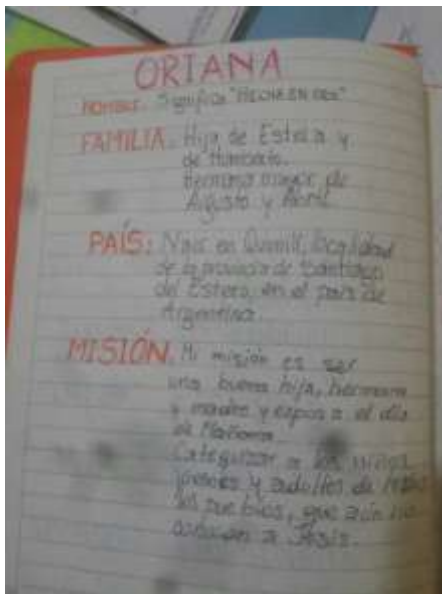 ORIANA
NOMBRE. Significa "HECHA EN ORO"
FAMILIA. Hija de Estela y
de Humberto.
Hermana mayor de
Agusto y Abril.
PAÍS: Nací en Quimilí, localidad
de la provincia de Santiago
del Estero, en el país de
Argentina.
MISIÓN. Mi misión es ser
una buena hija, hermana
y madre y esposa el día
de Mañana
Categuizar a los niños
jóvenes y adultos de
los pueblos, que aún no
conocen a Jesús.